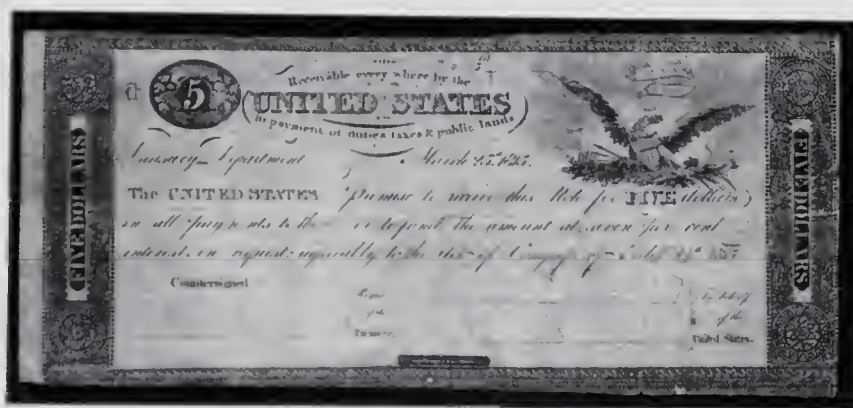 5
Receivable every where by the
UNITED STATES
in payment of duties taxes & public lands
Treasury Department March
The UNITED STATES promise to receive this Note for FIVE dollars
in all payments to the or to fund the amount at seven per cent
interest, on request: agreeably to the Act of Congress of
FIVE DOLLARS
FIVE DOLLARS
Countersigned
of the
Treasury
of the
United States.